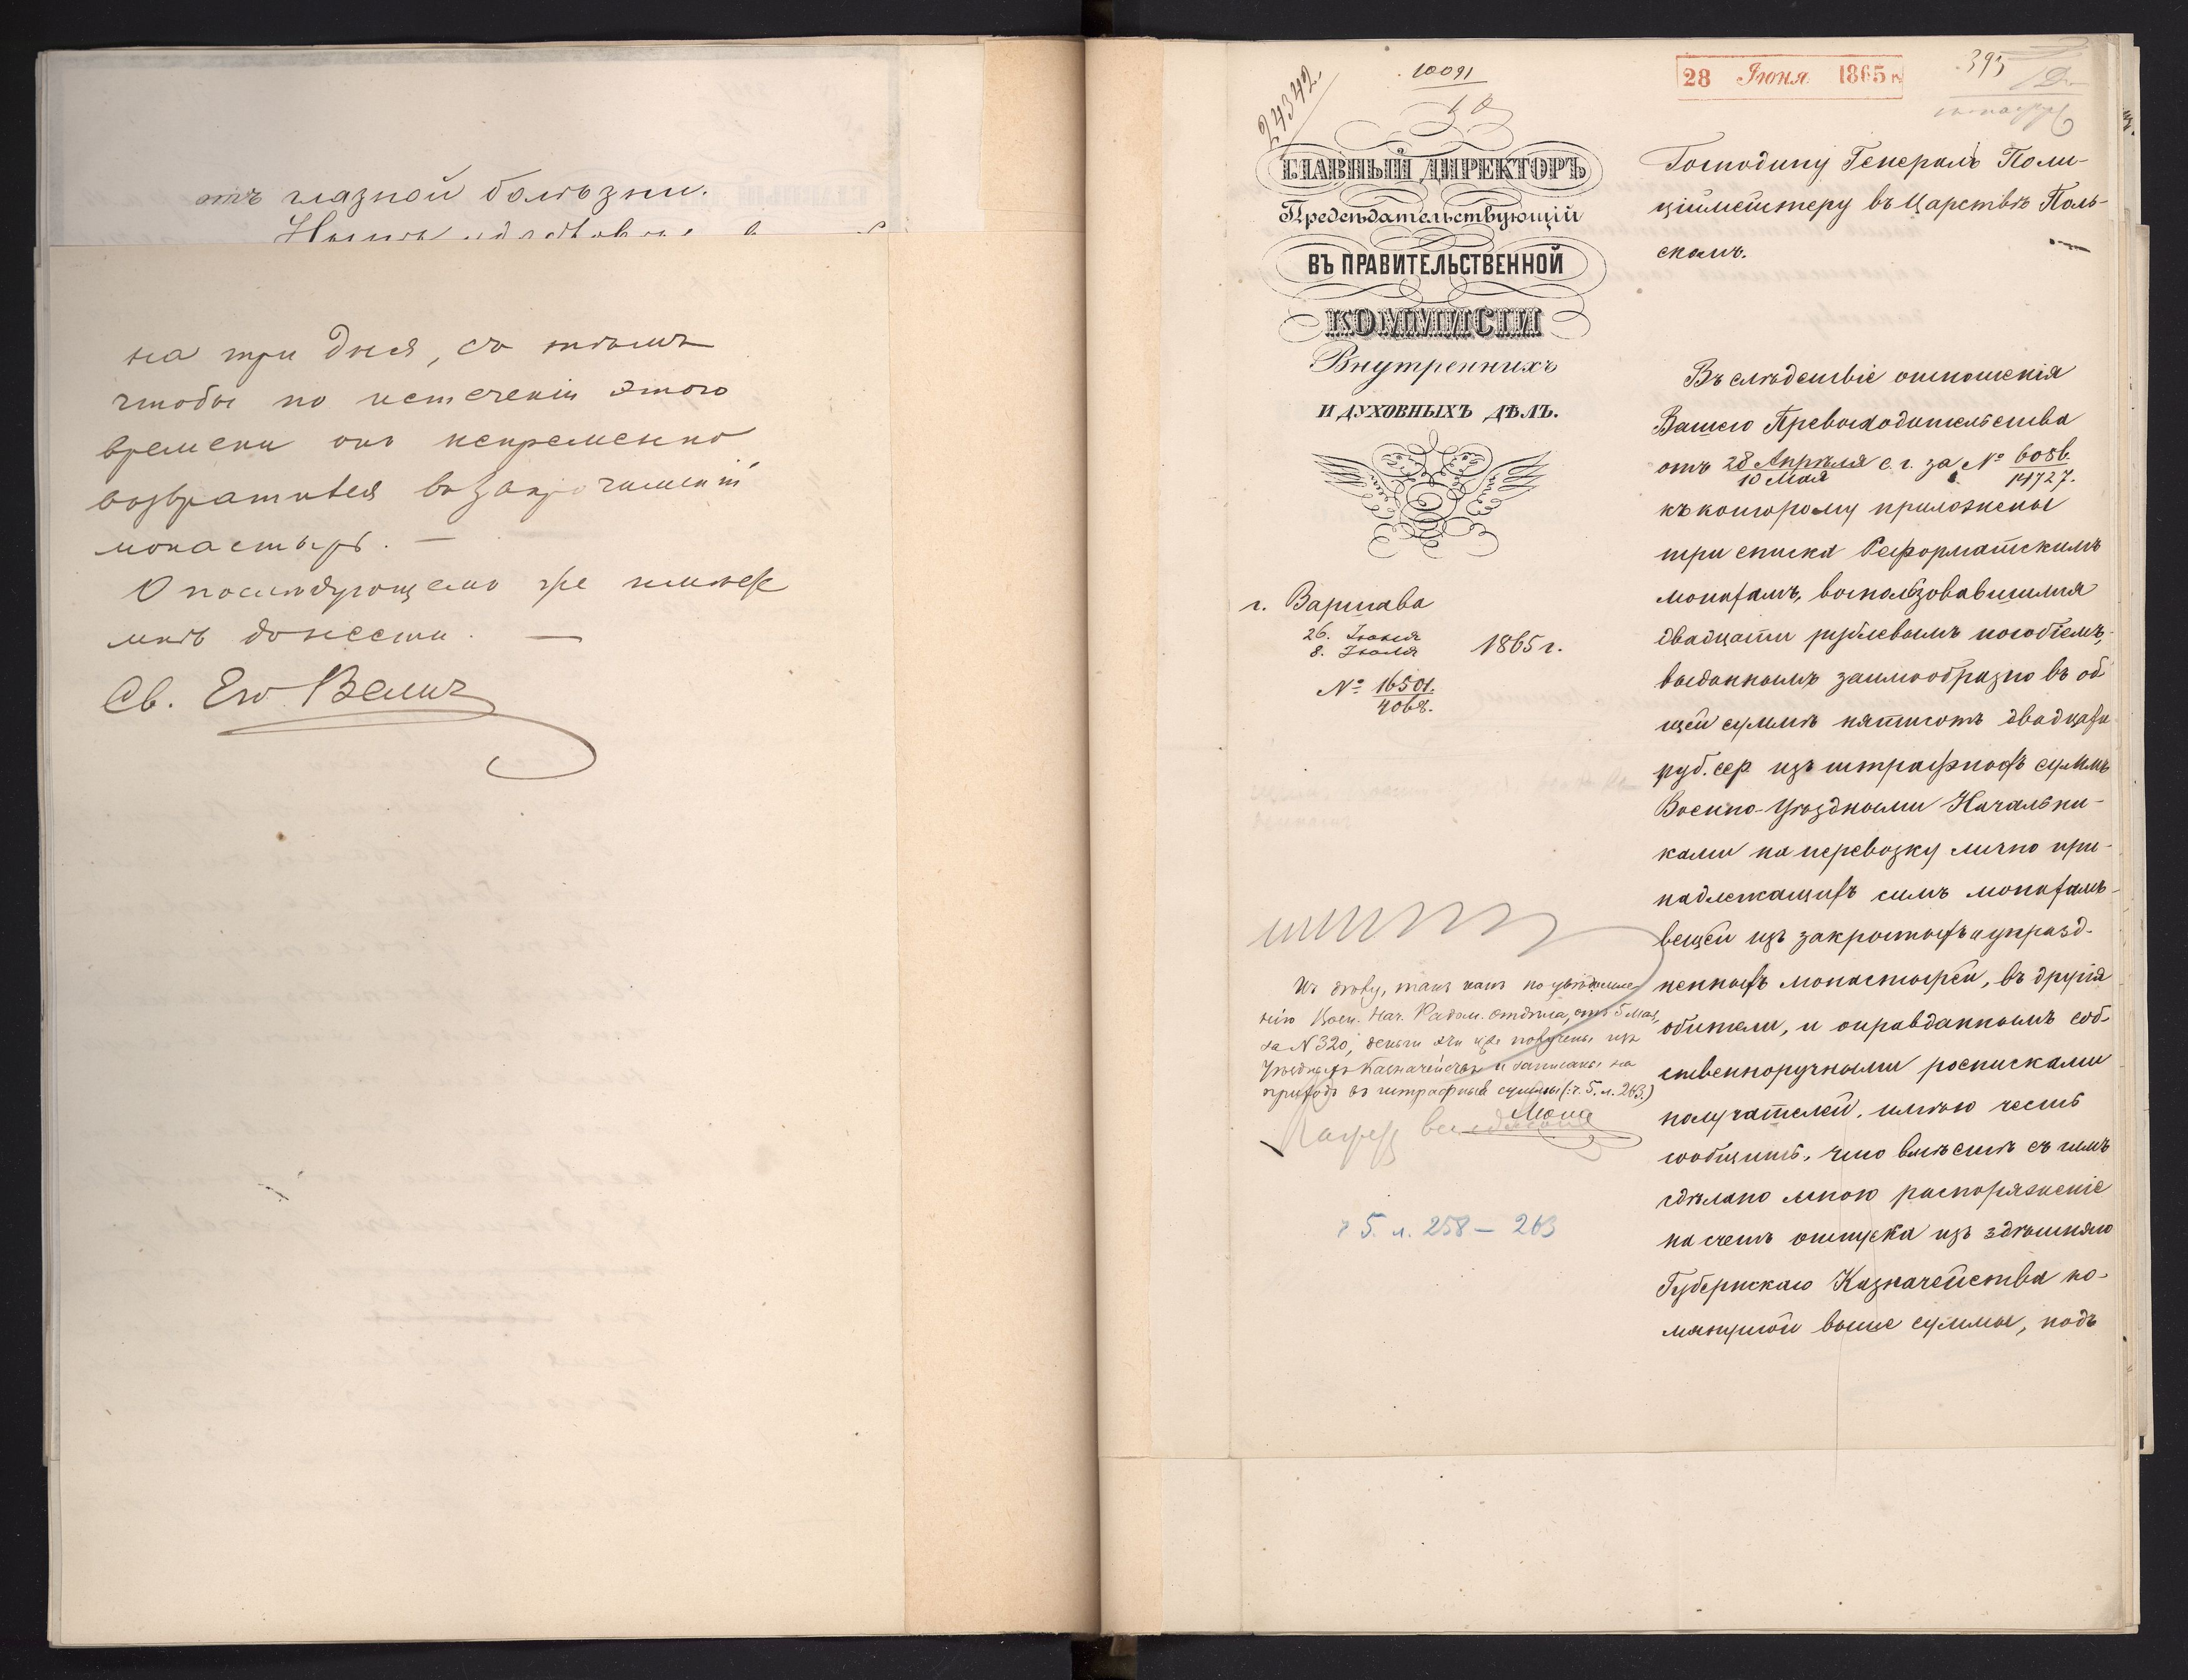 отъ глазной болѣзни.
на три дня, съ тѣмъ
чтобы по истеченіи этого
времени онъ непременно
возвратился въ закрочимскій
монастырь. —
О послѣдующемъ же имѣете
мнѣ донести. —
Св. Его Велич
24342
10091
28 Іюня 1865
395
ГЛАВНЫЙ ДИРЕКТОРЪ
Предсѣдательствующій
ВЪ ПРАВИТЕЛЬСТВЕННОЙ
КОММИСІИ
Внутреннихъ
И ДУХОВНЫХЪ ДѢЛЪ.
г. Варшава
26. Іюня
8. Іюля 1865 г.
№ 16501.
4068.
Господину Генералъ Поли-
ціймейстеру въ Царствѣ Поль-
скомъ.
Въ слѣдствіе отношенія
Вашего Превосходительства
отъ 28 Апрѣля с. г. за № 6086.
10 Мая 14727.
къ которому приложены
три списка Реформатскимъ
монахамъ, воспользовавшимся
двадцати рублевымъ пособіемъ,
выданнымъ заимообразно въ об
щей суммѣ пятисотъ двадцати
руб. сер. изъ штрафныхъ суммъ
Военно-Уѣздными Начальни-
ками на перевозку лично при-
надлежащихъ симъ монахамъ
вещей изъ закрытыхъ и упразд-
ненныхъ монастырей, въ другія
обители, и оправданнымъ соб-
ственноручными росписками
получателей, имѣю честь
сообщить, что вмѣстѣ съ симъ
сдѣлано мною распоряженіе
на счетъ отпуска изъ здѣшняго
Губернскаго Казначейства по-
мянутой выше суммы, подъ
Къ дѣлу, такъ какъ по увѣдомле
нію Воен. Нач. Радом. отдѣла, отъ 5 Мая,
за N 320, деньги эти уже получены изъ
Уѣздныхъ Казначействъ и записаны на
приходъ въ штрафныя суммы (: ч. 5. л. 263.)
ч 5. л. 258 — 263